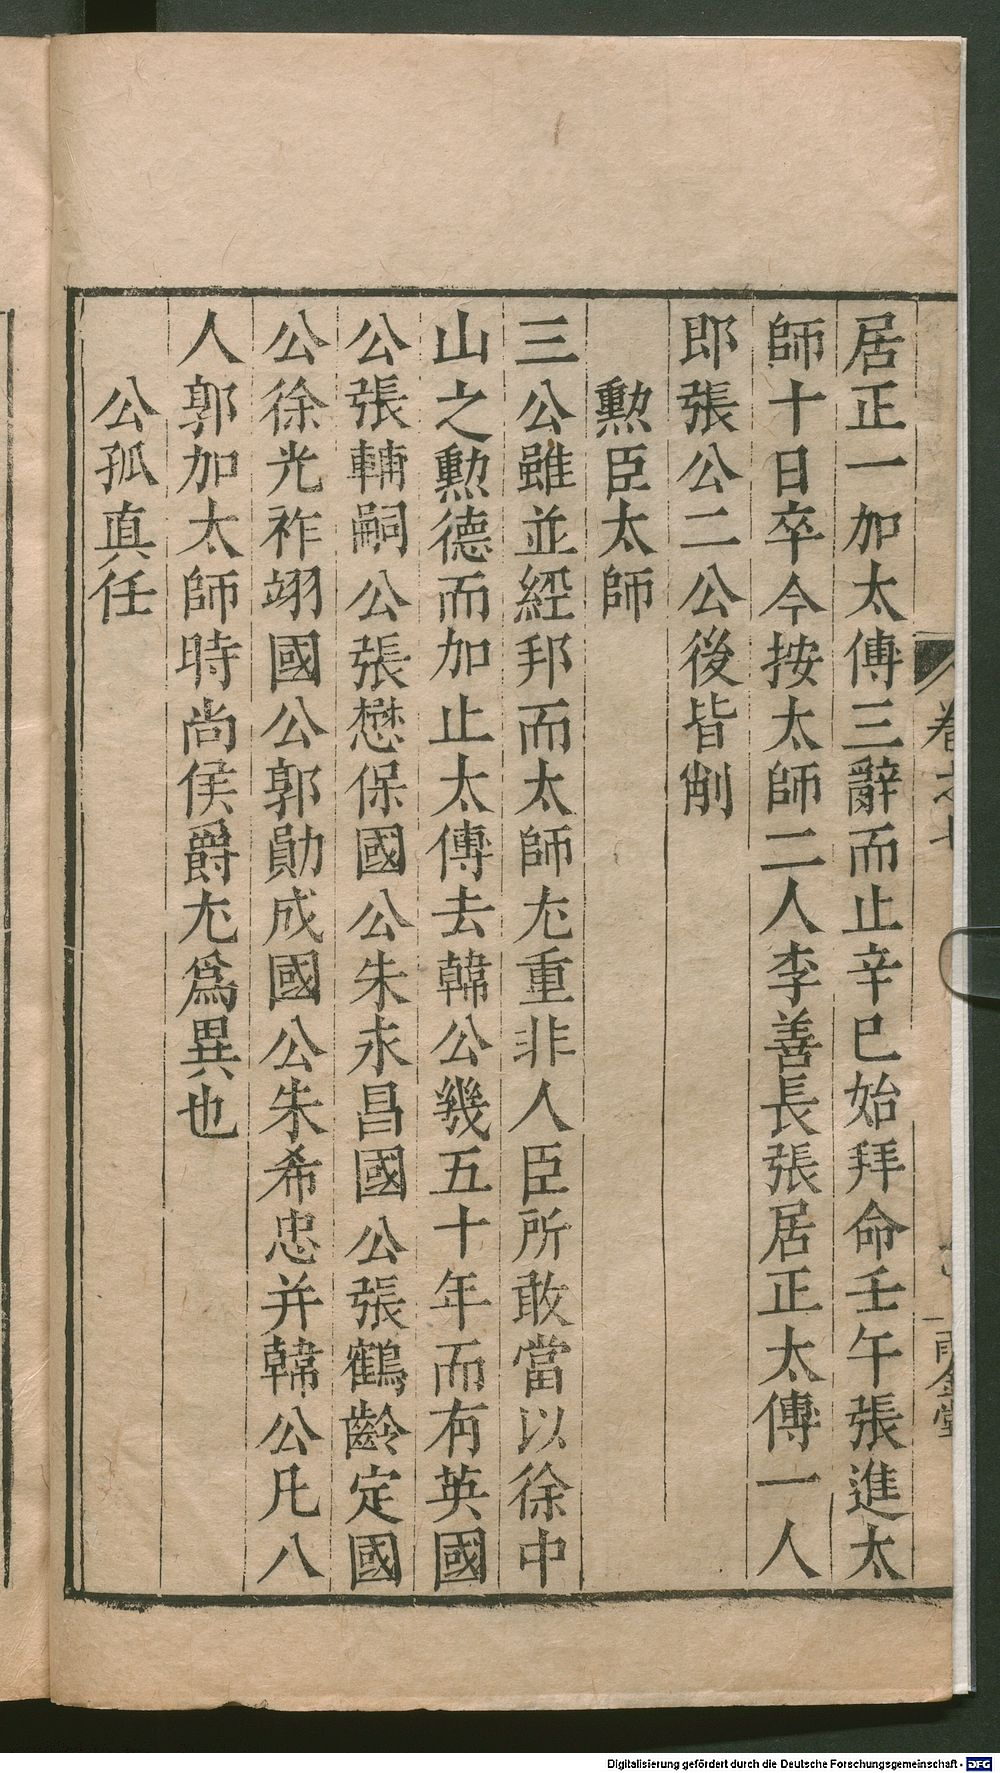 居正一加太傅三辭而止辛巳始拜命壬午張進太
師十日卒今按太師二人李善長張居正太傅一人
即張公二公後皆削
勲臣太師
三公雖並經邦而太師尤重非人臣所敢當以徐中
山之勲德而加止太傅去韓公幾五十年而有英國
公張輔嗣公張懋保國公朱永昌國公張鶴齡定國
公徐光祚翊國公郭勛成國公朱希忠并韓公凡八
人郭加太師時尚侯爵尤爲異也
公孤真任
Digitalisierung gefördert durch die Deutsche Forschungsgemeinschaft - DFG